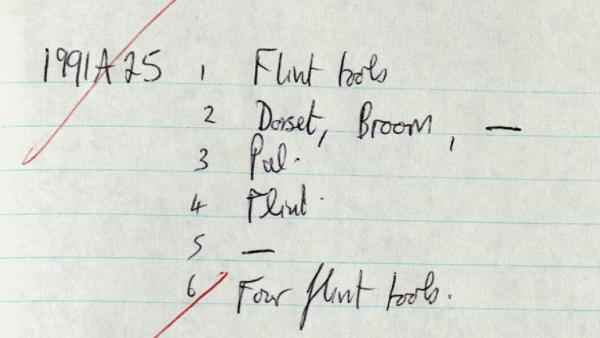 1991A25 1 Flint tools
2 Dorset, Broom, —
3 Pal.
4 Flint.
5 —
6 Four flint tools.